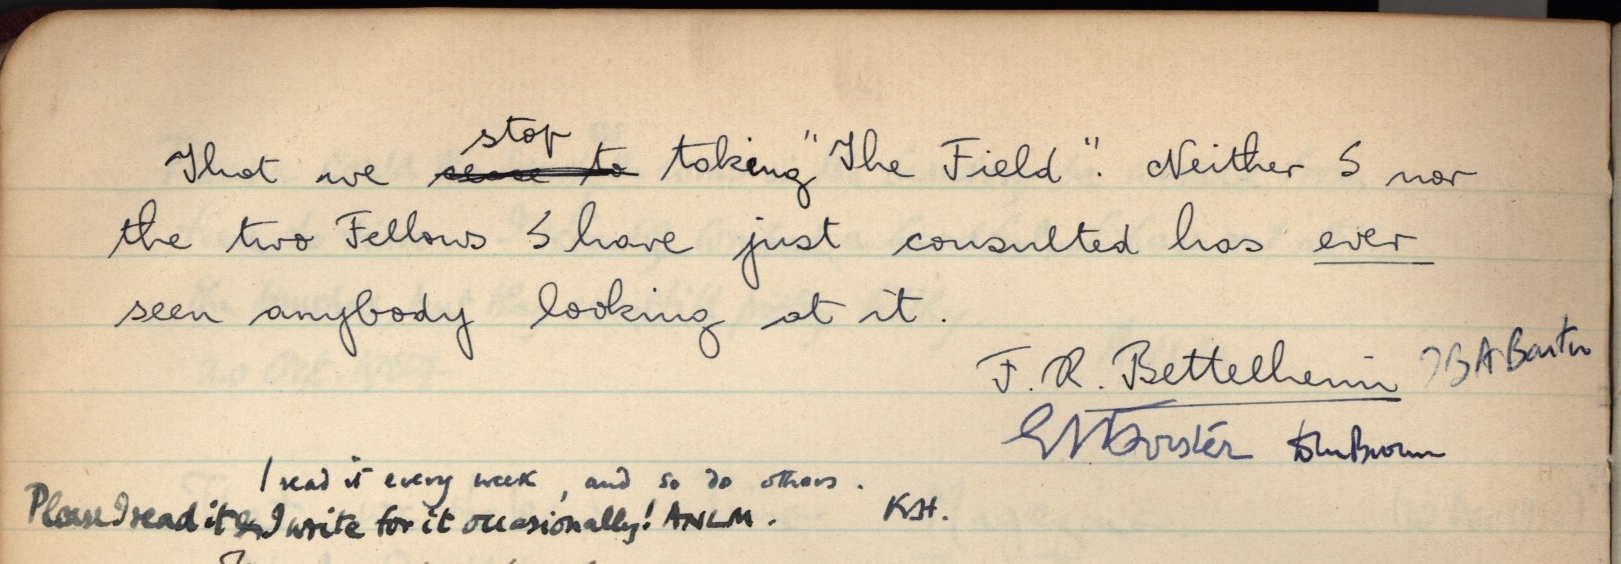 stop
That we cease to taking "The Field". Neither I nor
the two Fellows I have just consulted has ever
seen anybody looking at it.
F. R. Bettelheim
EMForster John Brown
I read it every week, and so do others.
Please I read it & I write for it occasionally! ANLM. KH.